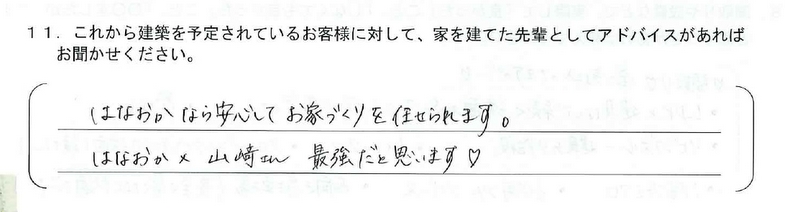 11．これから建築を予定されているお客様に対して、家を建てた先輩としてアドバイスがあれば
お聞かせください。
はなおかなら安心してお家づくりを任せられます。
はなおか×山崎さん 最強だと思います♡